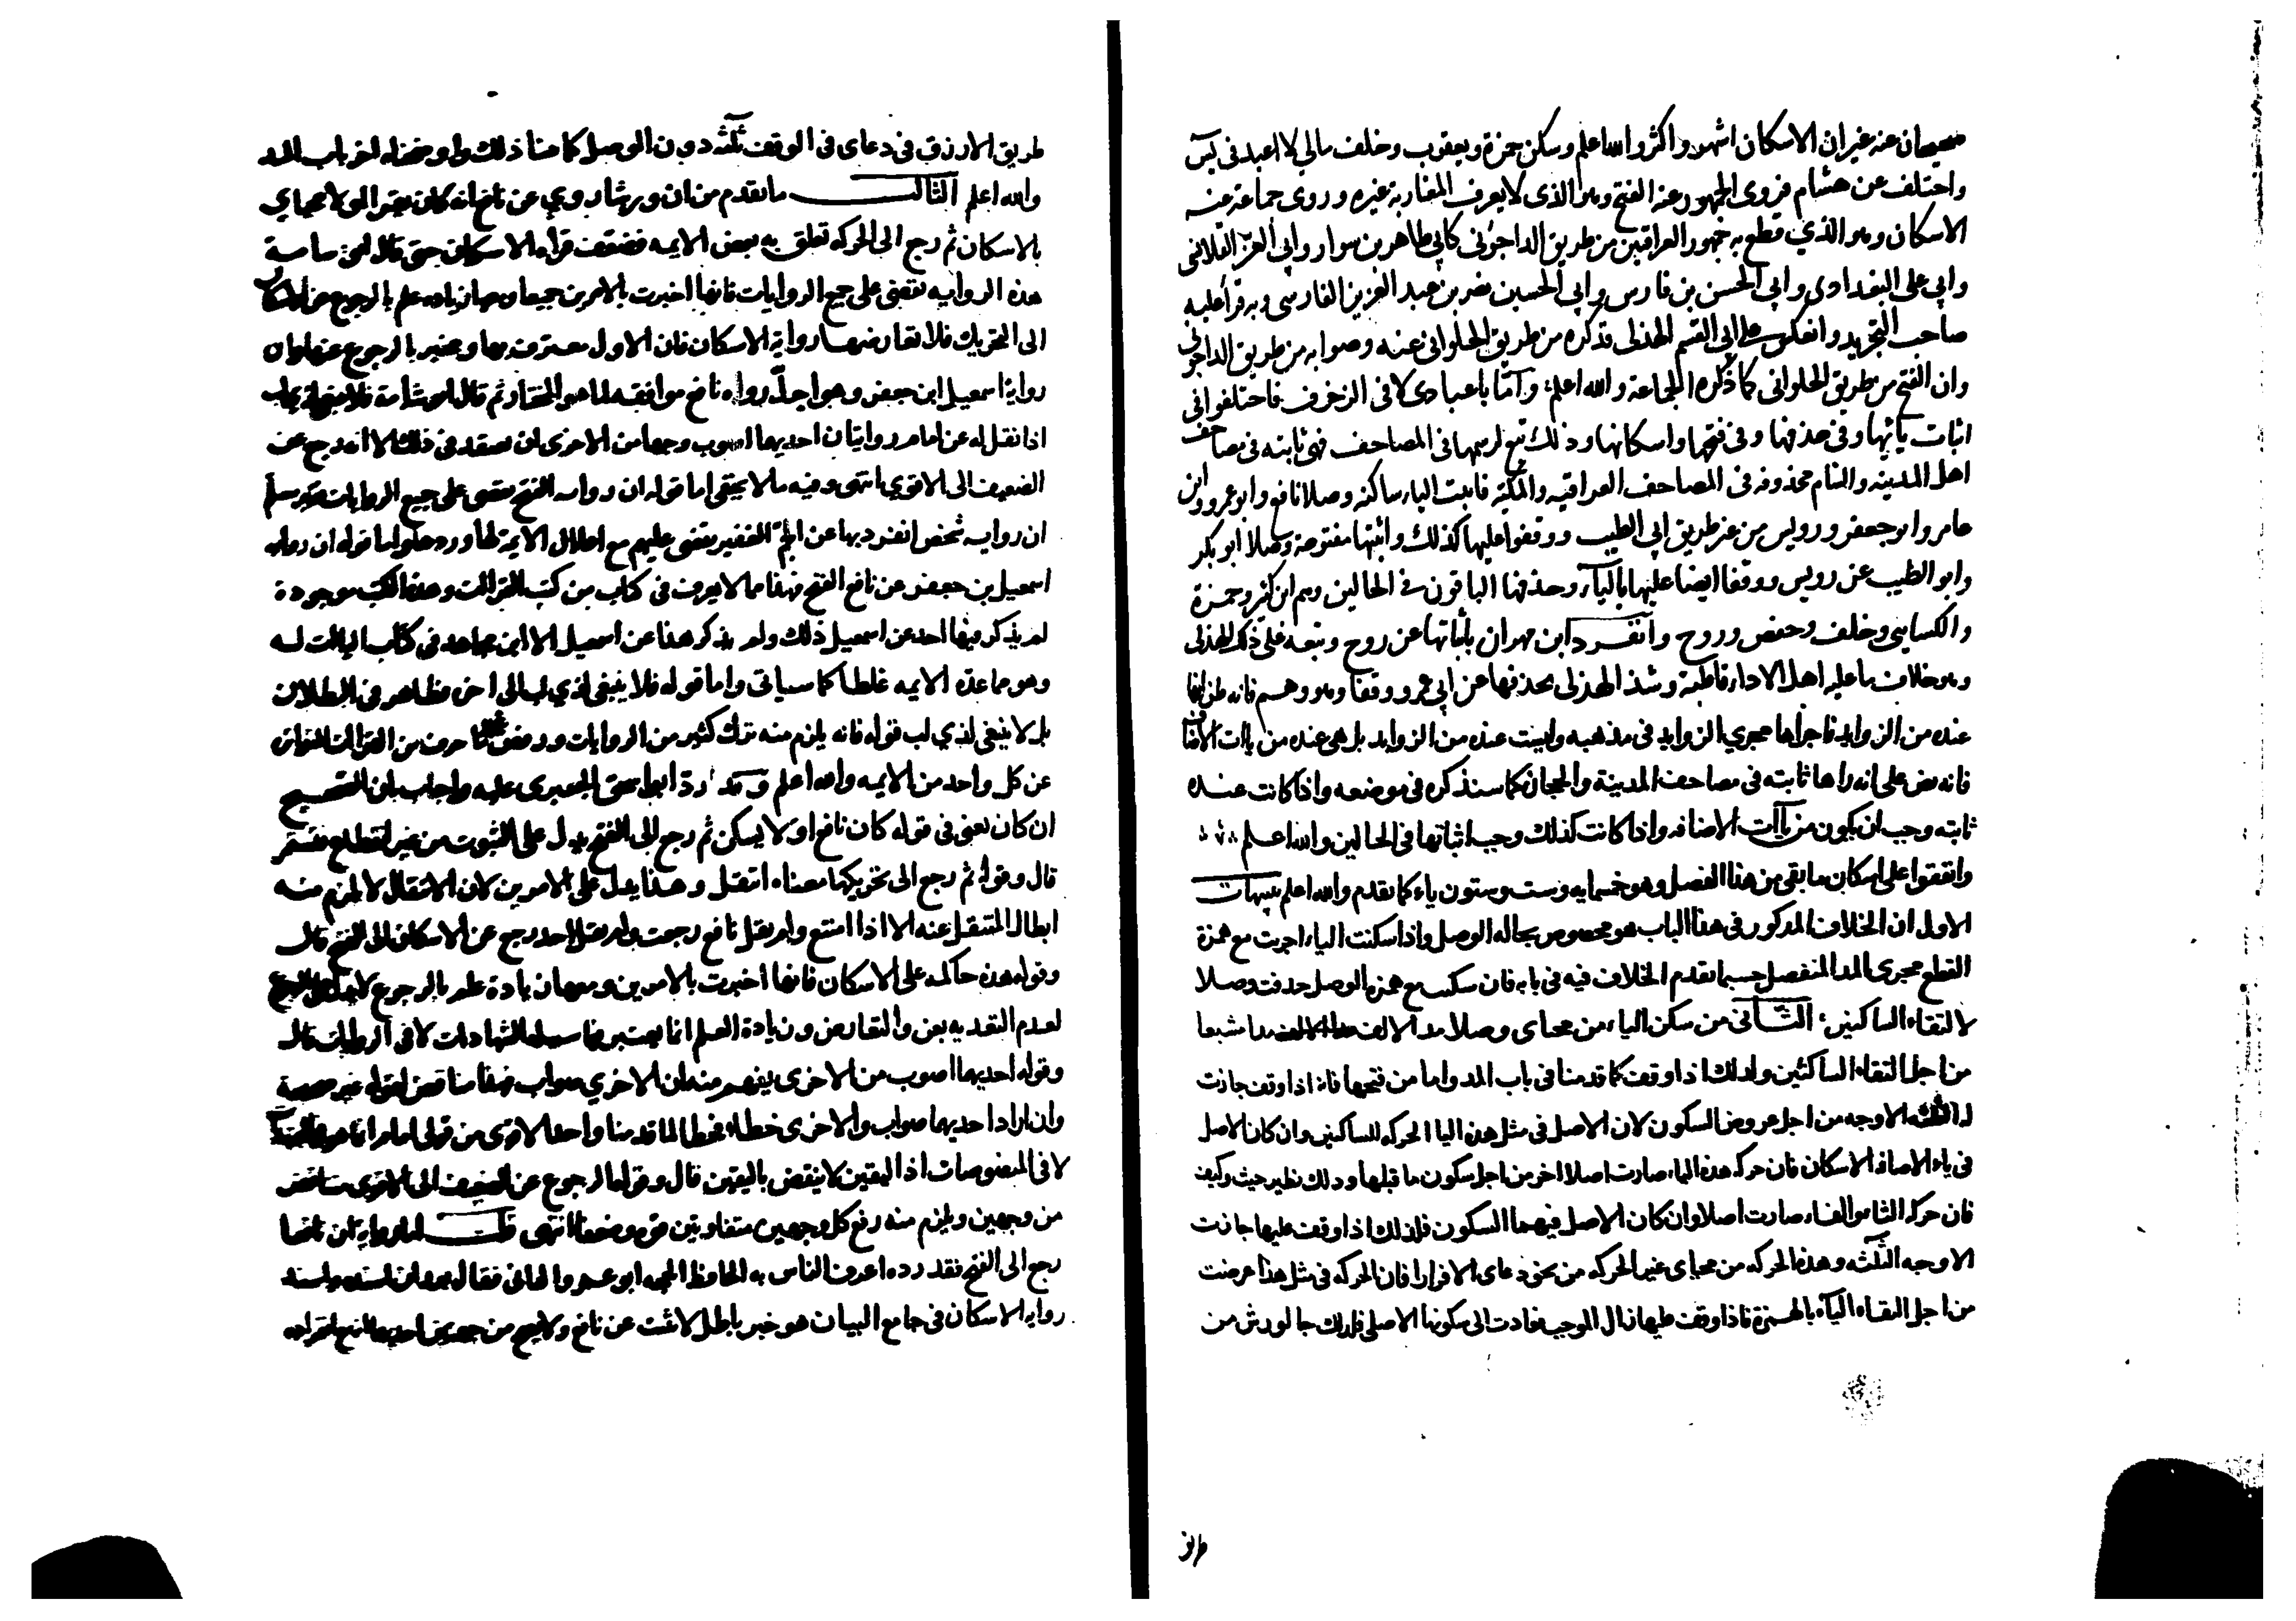 صحيحان عنه غير ان الاسكان اشهر واكثر والله اعلم وسكن حمزة ويعقوب وخلف مالي لا اعبد في يس
واختلف عن هشام فروى الجمهور عنه الفتح وهو الذى لا يعرف المغاربة غيره وروى جماعة عنه
الاسكان وهو الذي قطع به جمهور العراقيين من طريق الداجونى كابي طاهر بن سوار وابي العز القلانسى
وابي على البغدادى وابي الحسن بن فارس وابي الحسين نصر بن عبد العزيز الفارسى وبه قرأ عليه
صاحب التجريد وانعكس على ابى القسم الهذلى فذكره من طريق الحلوانى عنه وصوابه من طريق الداجونى
وان الفتح من طريق الحلوانى كما ذكره الجماعة والله اعلم، وأما يا عبادى لا فى الزخرف فاختلفوا فى
اثبات يائها وفى حذفها وفى فتحها واسكانها وذلك تبع لرسمها فى المصاحف فهى ثابته فى مصاحف
اهل المدينه والشام محذوفه فى المصاحف العراقيه والمكية فاثبت الياء ساكنه وصلا نافع وابو عمرو وابن
عامر وابو جعفر ورويس من غير طريق ابي الطيب ووقفوا عليها كذلك واثبتها مفتوحة وصلا ابو بكر
وابو الطيب عن رويس ووقفا ايضا عليها بالياء وحذفها الباقون فى الحالين وهم ابن كثير وحمزة
والكسايى وخلف وحفص وروح وانفرد ابن مهران باثباتها عن روح وتبعه على ذلك الهذلى
وهو خلاف ما عليه اهل الاداء قاطبة وشذ الهذلى بحذفها عن ابي عمرو وقفا وهو وهم فانه ظن انها
عنده من الزوايد فاجراها مجري الزوايد فى مذهبه وليست عنده من الزوايد بل هى عنده من ياات الاضافة
فانه نص على انه راها ثابته فى مصاحف المدينة والحجاز كما سنذكره فى موضعه واذا كانت عنده
ثابته وجب ان يكون من ياآت الاضافه واذا كانت كذلك وجب اثباتها فى الحالين والله اعلم
واتفقوا على اسكان ما بقى من هذا الفصل وهو خمسمايه وست وستون ياء كما تقدم والله اعلم تنبيهات
الاول ان الخلاف المذكور فى هذا الباب هو مخصوص بحاله الوصل واذا سكنت الياء اجريت مع همزة
القطع مجرى المد المنفصل حسبما تقدم الخلاف فيه فى بابه فان سكنت مع همزه الوصل حذفت وصلا
لالتقاء الساكنين، الثانى من سكن الياء من محياى وصلا مد الالف مدا مشبعا
من اجل التقاء الساكنين ولذلك اذا وقف كما قدمنا فى باب المد واما من فتحها فانه اذا وقف جازت
له الثلثه الاوجه من اجل عروض السكون لان الاصل فى مثل هذه اليا الحركه للساكنين وان كان الاصل
فى ياء الاضافه الاسكان فان حركه هذه الياء صارت اصلا اخر من اجل سكون ما قبلها وذلك نظير حيث وكيف
فان حركه الثاء والفاء صارت اصلا وان كان الاصل فيهما السكون فلذلك اذا وقف عليها جازت
الاوجه الثلثه وهذه الحركه من محياى غير الحركه من نحو دعاى الا فرارا فان الحركه فى مثل هذا عرضت
من اجل التقاء الياء بالهمزة فاذا وقف عليها زال الموجب فعادت الى سكونها الاصلى فلذلك جا لورش من
طريق
طريق الازرق فى دعاى فى الوقف ثلثه دون الوصل كما منا ذلك واوضحناه اخر باب المد
والله اعلم الثالث ما تقدم من ان ورشا روي عن نافع انه كان اولا محياي
بالاسكان ثم رجع الى الحركه تعلق به بعض الايمه فضعف قراءه الاسكان حتى قال ابو شامة
هذه الروايه تقضى على جميع الروايات فانها اخبرت بالامرين جميعا ومعها زياده علم بالرجوع عن الاسكان
الى التحريك فلا تعارضها رواية الاسكان فان الاول معترف بها ومخبر بالرجوع عنها وان
رواية اسمعيل ابن جعفر وهو اجل رواه نافع موافقه لما هو المختار ثم قال ابو شامة فلا ينبغى
اذا نقل له عن امام روايتان احديهما اصوب وجها من الاخرى ان يعتقد فى ذلك الا انه رجع عن
الضعيف الى الاقوي انتهى وفيه ما لا يخفى اما قوله ان روايه الفتح تقضى على جميع الروايات فغير مسلم
ان روايه شخص انفرد بها عن الجم الغفير تقضى عليهم مع اعلال الايمه لها وردها واما قوله ان روايه
اسمعيل بن جعفر عن نافع الفتح فهذا مما لا يعرف فى كتاب من كتب القراات وهذه الكتب موجودة
لم يذكر فيها احد عن اسمعيل ذلك ولم يذكر هذا عن اسمعيل الا ابن مجاهد فى كتاب الياات له
وهو مما عده الايمه غلطا كما سياتى واما قوله فلا ينبغى لذي لب الى اخره فظاهر فى البطلان
بل لا ينبغى لذي لب قوله فانه يلزم منه ترك كثير من الروايات ورفض حرف من القراات المتواتره
عن كل واحد من الايمه والله اعلم وقد رد ابو اسحق الجعبرى عليه واجاب بان التصحيح
ان كان يعنى فى قوله كان نافع اولا يسكن ثم رجع الى الفتح يدل على الثبوت من غير انقطاع فتستمر
قال وقوله ثم رجع الى تحريكها معناه انتقل وهذا يدل على الامرين لان الانتقال لا يلزم منه
ابطال المنتقل عنه الا اذا امتنع ولم يقل نافع رجعت ولم يقل احد رجع عن الاسكان الى الفتح قال
وقوله هذه حاكمه على الاسكان فانها اخبرت بالامرين ومعها زيادة علم بالرجوع
لعدم التقديه بعن والتعارض وزيادة العلم انما يعتبر فيما سبيله الشهادات لا فى الروايات قال
وقوله احديهما اصوب من الاخرى يفهم منه ان الاخري صواب فهذا مناقض لقوله غير صحيحة
وان اراد احديهما صواب والاخرى خطاء فخطا لما قدمنا واخذ الاقوى من قولى امام انما هو
لا فى المنصوصات اذ اليقين لا ينقض باليقين قال وقولها لرجوع عن الضعيف الى الاقوى متناقض
من وجهين ويلزم منه رفع كل وجهين متفاوتين قوه وضعفا انتهى قلت اما رواية ان نافعا
رجع الى الفتح فقد رده اعرف الناس به الحافظ الحجه ابو عمرو الدانى فقال بعد ان اسنده واسند
روايه الاسكان فى جامع البيان هو خبر باطل لا يثبت عن نافع ولا يصح من جهتين احديهما